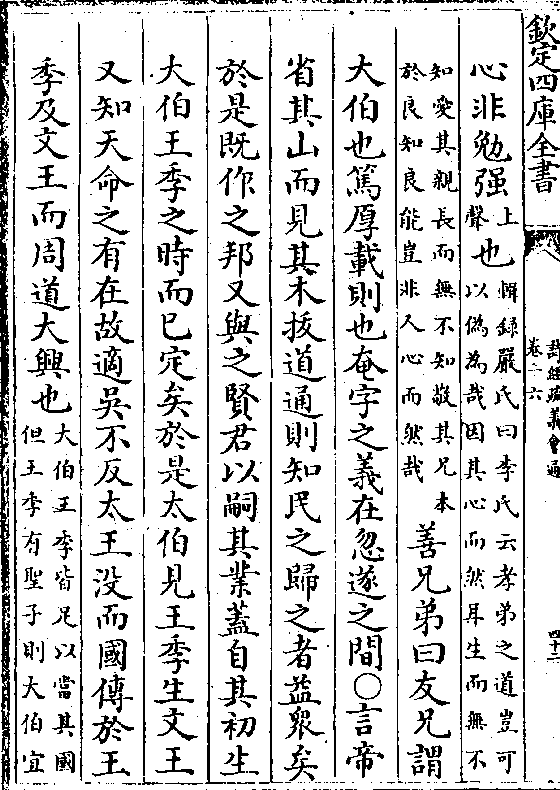 欽定四庫全書
詩經疏義會通
卷十六
四十二
心非勉强上聲也輯録嚴氏曰李氏云孝弟之道豈可以偽為哉因其心而然耳生而無不
知愛其親長而無不知敬其兄本於良知良能豈非人心而然哉善兄弟曰友兄謂
大伯也篤厚載則也奄字之義在忽遂之間○言帝
省其山而見其木拔道通則知民之歸之者益衆矣
於是既作之邦又與之賢君以嗣其業蓋自其初生
大伯王季之時而已定矣於是太伯見王季生文王
又知天命之有在故適吳不反太王没而國傳於王
季及文王而周道大興也大伯王季皆足以當其國但王季有聖子則大伯宜